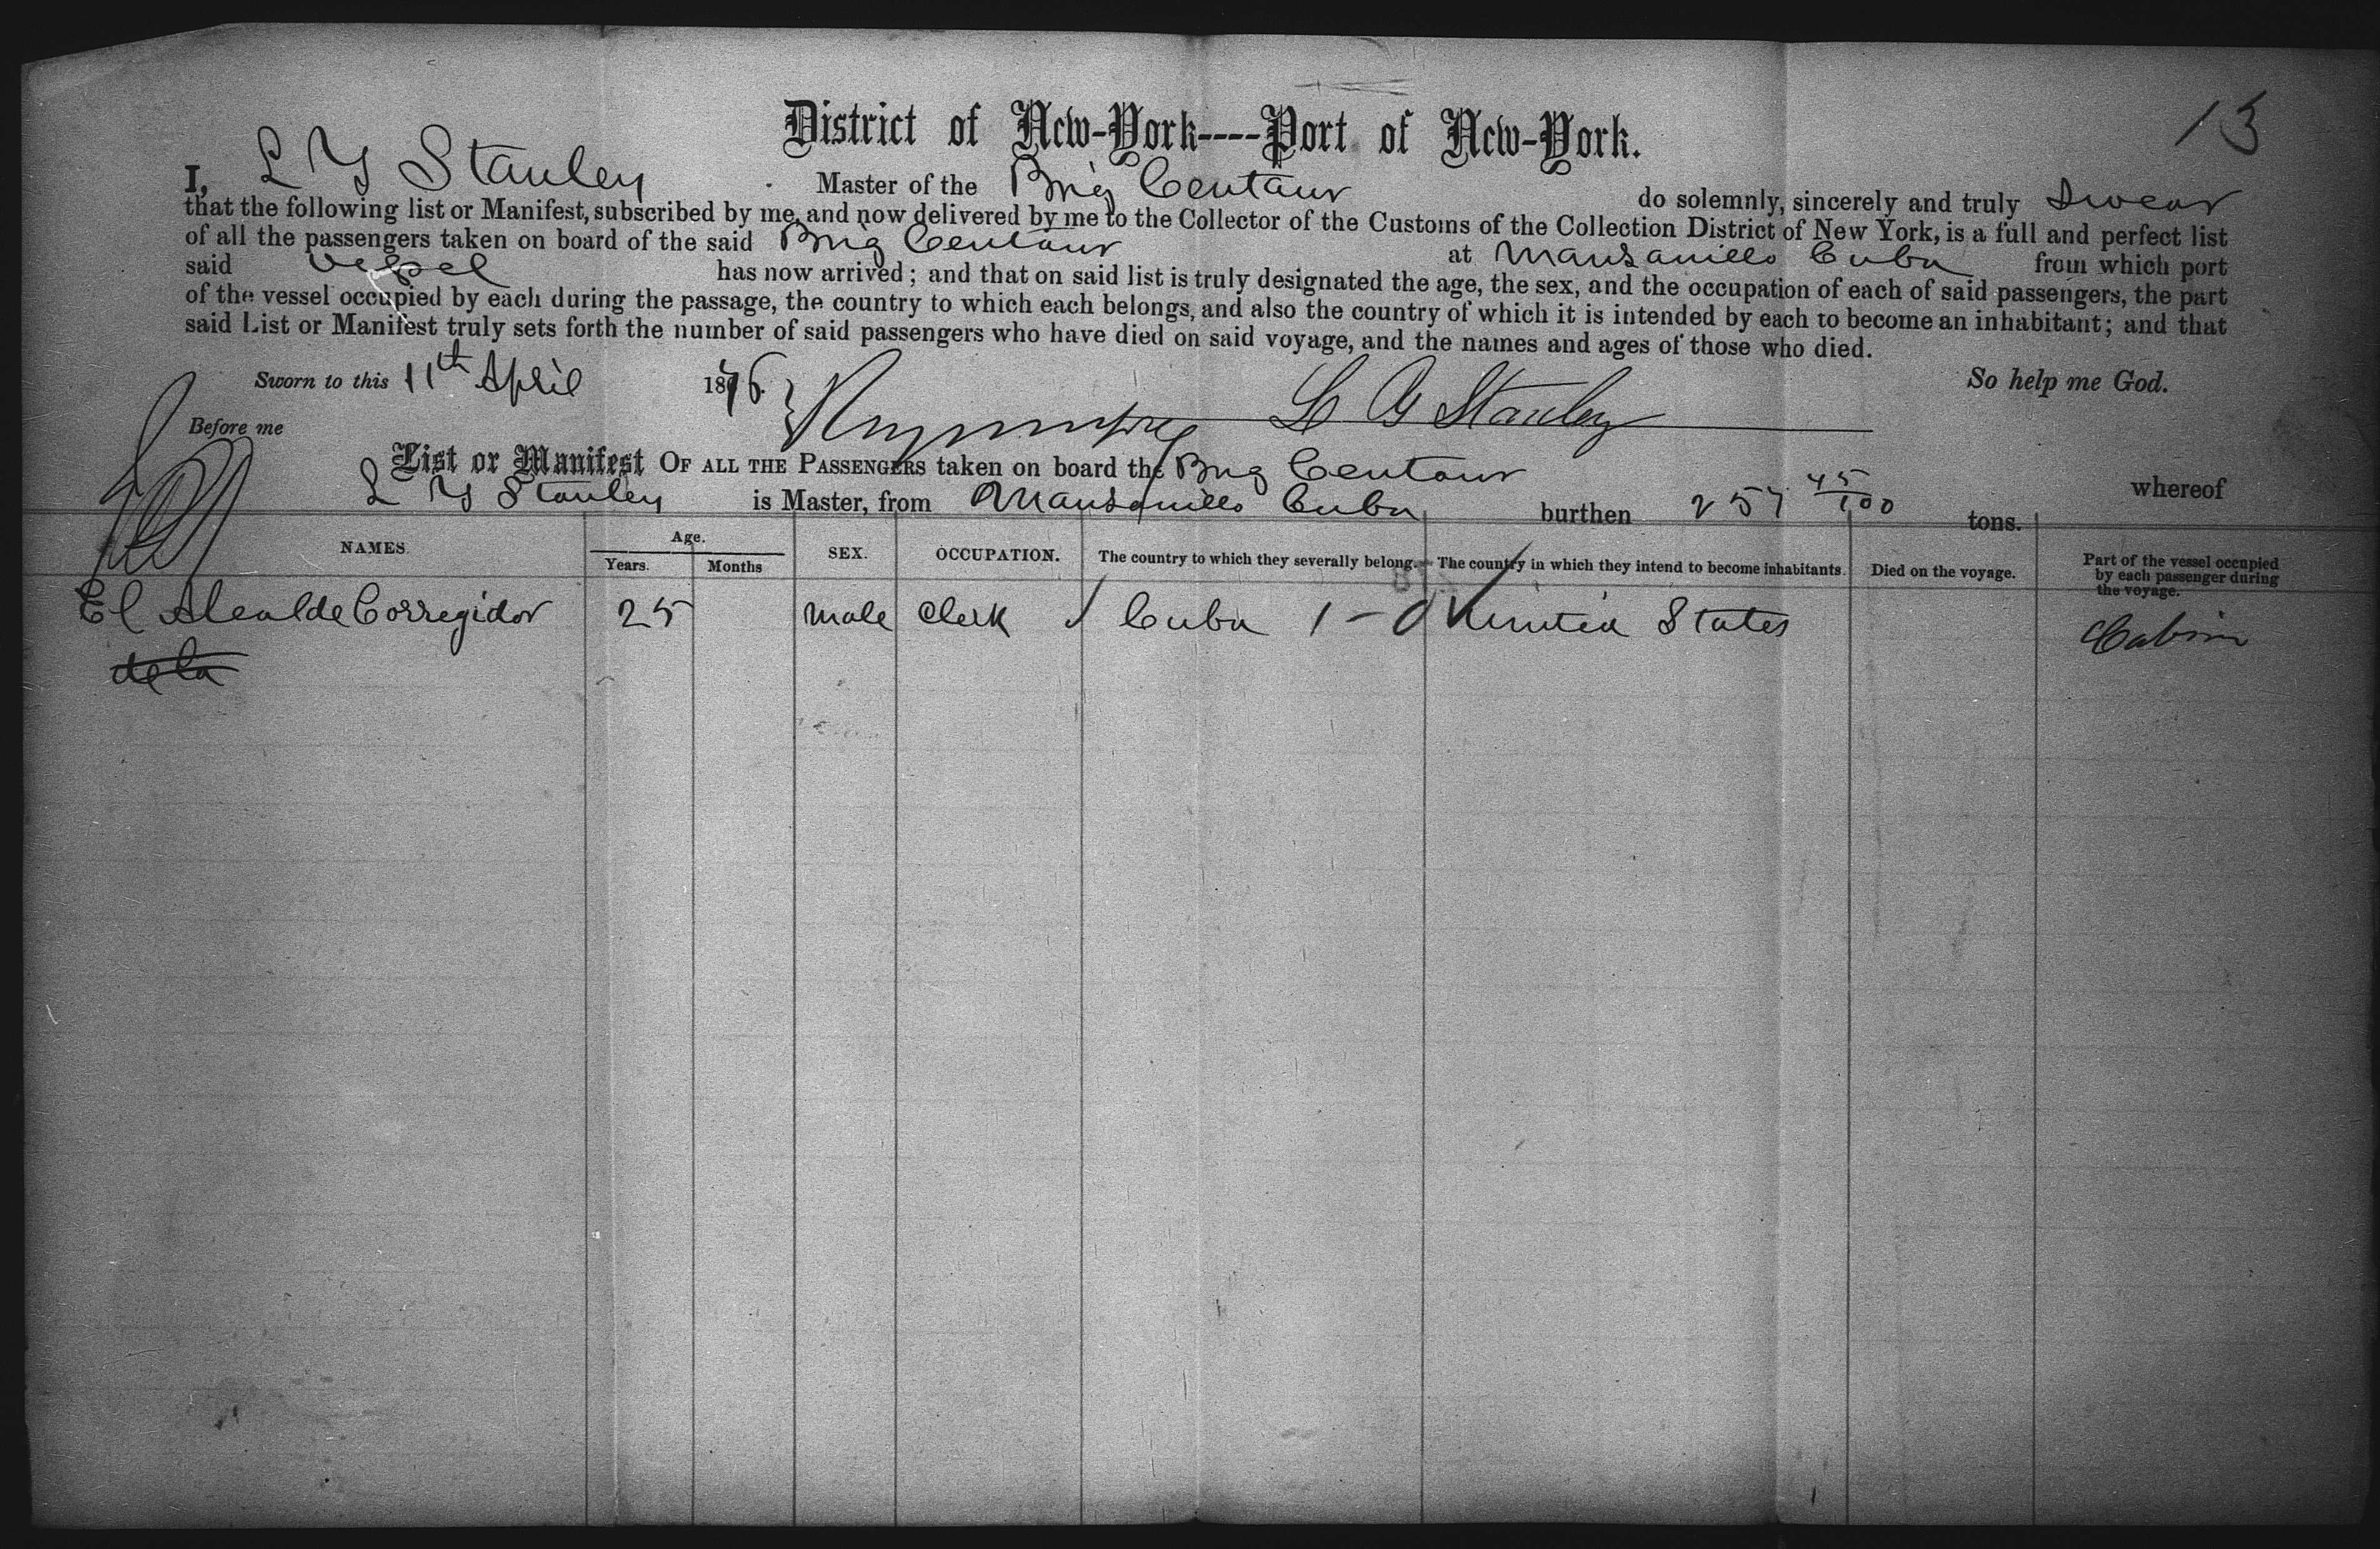 13
District of New-York----Port of New-York.
I, L Y Stanley Master of the Brig Centaur do solemnly, sincerely and truly Swear
that the following list or Manifest, subscribed by me, and now delivered by me to the Collector of the Customs of the Collection District of New York, is a full and perfect list
of all the passengers taken on board of the said Brig Centaur at Mansanillo Cuba from which port
said Vessel has now arrived; and that on said list is truly designated the age, the sex, and the occupation of each of said passengers, the part
of the vessel occupied by each during the passage, the country to which each belongs, and also the country of which it is intended by each to become an inhabitant; and that
said List or Manifest truly sets forth the number of said passengers who have died on said voyage, and the names and ages of those who died.
Sworn to this 11th April 1876. So help me God.
Before me L Y Stanley
List or Manifest OF ALL THE PASSENGERS taken on board the Brig Centaur whereof
L Y Stanley is Master, from Mansanillo Cuba burthen 257 45/100 tons.
NAMES. Age. Years. Months SEX. OCCUPATION. The country to which they severally belong. The country in which they intend to become inhabitants. Died on the voyage. Part of the vessel occupied by each passenger during the voyage.
El Alcalde Corregidor 25 male clerk Cuba 1-0 United States Cabin
de la